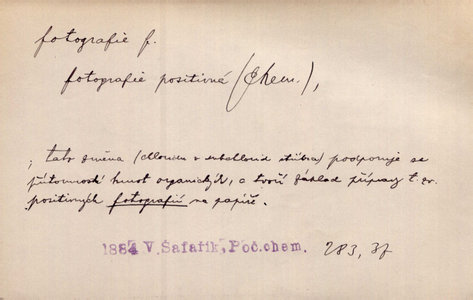 fotografie f.
fotografie positivná (Chem.),
; tato změna (chloridu v subchlorid stříbra) podporuje se
přítomností hmot organických, a tvoří základ přípravy t. zv.
positivných fotografií na papíře.
1884 V. Šafařík, Poč.chem. 283, 37